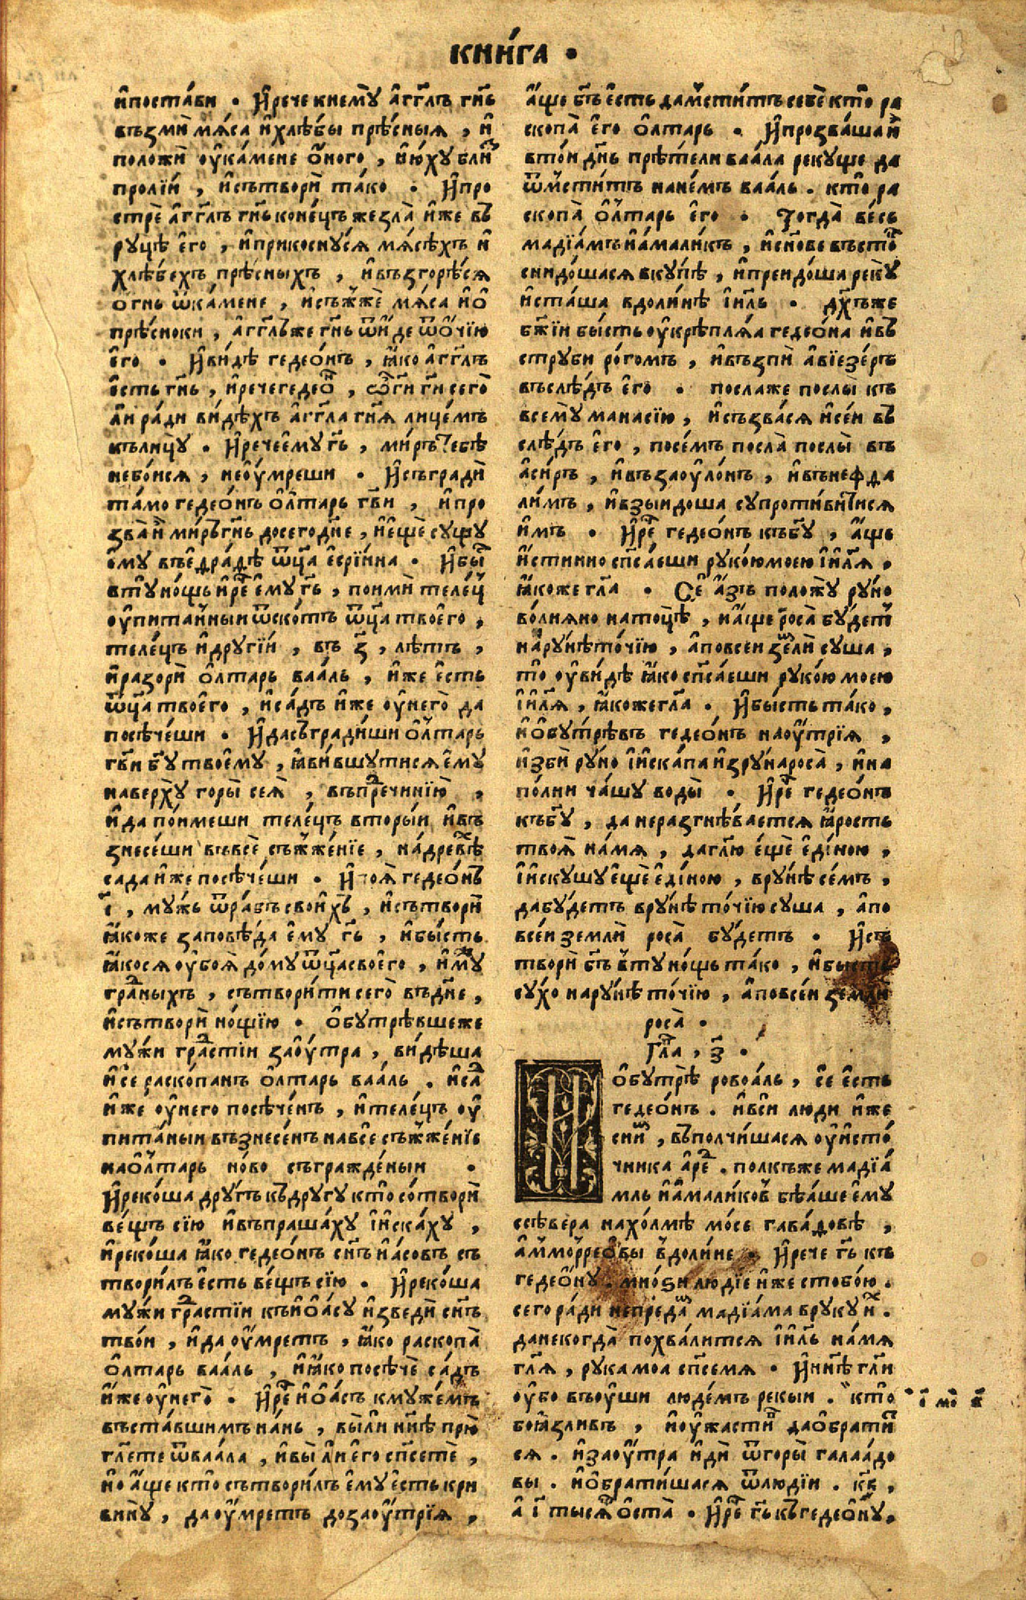 КНИ́ГА •
и҆поста́ви • И҆рече кнемꙋ̀ а҆гг҃лъ гн҃ь
въꙁмѝ мѧ́са и҆хлѣ́бы прѣ́сныѧ , и҆
положѝ ѹ҆ка́мене ѻ҆́ного , и҆ю҆хꙋ бли꙽
пролі́и , и҆сътворѝ та́ко • И҆про
стрѐ а҆гг҃лъ гн҃ь коне́цъ жеꙁла̀ и҆́же въ
рꙋцѣ̀ е҆го̀ , и҆прикоснꙋ́сѧ мѧсѣ́хъ и҆
хлѣ́бехъ прѣ́сныхъ , и҆въꙁгорѣ́сѧ
ѻ҆́гнь ѿка́мене , и҆съжжѐ мѧ́са и҆ѻ
прѣ́сноки , а҆гг҃лъже гн҃ь ѿи҆́де ѿѻ҆́чїю
е҆го̀ • И҆ви́дѣ гедео́нъ , ꙗ҆́ко а҆гг҃лъ
е҆́сть гн҃ь , и҆речегедео҆н , ѽги гн҃и сего̀
ли ра́ди ви́дѣхъ а҆гг҃ла гн҃ѧ лице́мъ
кълицꙋ̀ • И҆речее҆мꙋ гь҃ , ми́ръ тебѣ̀
небо́исѧ , нео҆у́мреши • И҆съградѝ
та́мо гедео́нъ ѻ҆лта́рь гв҃и , и҆про
ꙁва̀ и҆ ми́ръ гн҃ь досегод҃не , и҆е҆ще сꙋщꙋ
е҆мꙋ въе҆дра́дѣ ѿц҃а е҆ері́ина • И҆бы
втꙋно́щь и҆рⷱ҇е е҆мꙋ гь҃ , поимѝ теле́ц
ѹ҆пита́нныи ѿско́тъ ѿц҃а твоего̀ ,
теле́цъ и҆дрꙋгі́и , въ ꙁ҃ , лѣ́тъ ,
и҆раꙁорѝ ѻ҆лта́рь ваа́ль , и҆́же е҆́сть
ѿц҃а твоего̀ , и҆са́дъ и҆́же ѹ҆него̀ да
посѣче́ши • И҆дасъгради́ши ѻ҆лта́рь
гв҃и бг҃ꙋ твоемꙋ̀ , ꙗ҆ви́вшꙋтисѧ е҆мꙋ
наве́рхꙋ горы̀ сеѧ̀ , въпречині́ю ,
и҆да поимеши теле́цъ вторы́и и҆въ
ꙁнесе́ши въвсѐ съжже́нїе , на́древѣ
са́да и҆́же посѣче́ши • И҆поѧ́ гедео́нъ
і҃ , мꙋ́жь ѿра́бъ свои́хъ , и҆сътворѝ
ꙗ҆́коже ꙁаповѣ́да е҆мꙋ гь҃ , и҆бы́сть
ꙗ҆́косѧ ѹ҆боѧ̀ до́мꙋ ѿц҃асвоего̀ , и҆мꙋ
гра́ныхъ , сътвори́ти сего̀ въд҃не ,
и҆сътворѝ но́щїю • ѻ҆бꙋтрѣ́вшеже
мꙋ́жи гра́стїи ꙁаѹ҆́тра , ви́дѣша
и҆сѐ раско́панъ ѻ҆лта́рь ваа́ль . и҆са́
и҆́же ѹ҆него̀ посѣче́нъ , и҆теле́цъ ѹ҆
пита́ныи въꙁнесе́нъ навсѐ съжже́нїе
наѻ҆лта́рь но́во съгражде́ныи •
И҆реко́ша дрꙋ́гъ къдрꙋ́гꙋ кто̀ со́творѝ
ве́щъ сїю̀ и҆въпраша́хꙋ і҆иска́хꙋ ,
и҆реко́ша ꙗ҆́ко гедео́нъ сн҃ъ и҆а́совъ съ
твори́лъ е҆́сть ве́щъ сїю̀ • И҆реко́ша
мꙋ́жи гра́стїи къи҆ѻ҆а́сꙋ и҆ꙁведѝ сн҃ъ
тво́и , и҆да ѹ҆́мретъ , ꙗ҆́ко раскопа̀
ѻ҆лта́рь ваа́ль , и҆ꙗ҆́ко посѣ́че са́дъ
и҆́же ѹ҆него̀ • И҆рⷱ҇е и҆ѻ҆а́съ кмꙋже́мъ
въста́вшимъ на́нь , вы́ли нн҃ѣ прю̀
гл҃ете ѿваа́ла , и҆вы̀ ли е҆го сп҃сетѐ ,
и҆о҆ а҆́ще кто̀ сътвори́лъ е҆мꙋ е҆́сть кри
винꙋ̀ , да ѹ҆́мретъ доꙁаѹ҆́трїѧ ,
а҆́ще бг҃ъ е҆́сть дам҆сти́тъ себѐ кто̀ ра
скопа̀ е҆го̀ ѻ҆лта́рь • И҆проꙁва́ша и҆
вто́и дн҃ь прѣ́тели ваа́ла рекꙋще да
ѿмсти́тъ нане́мъ ваа́ль . кто̀ ра
скопа̀ ѻ҆лта́рь е҆го̀ • Тогда̀ ве́сь
мадїа́мъ и҆а҆мали́къ , и҆сн҃ове въсто҆
снидо́шасѧ вкꙋ́пѣ , и҆преидо́ша рекꙋ̀
и҆ста́ша вдоли́нѣ і҆и҃ль • дх҃ъже
бж҃їи бы́сть ѹ҆крѣплѧ́ѧ гедео́на и҆въ
стрꙋби ро́гомъ , и҆въꙁпѝ а҆вїеꙁе́ръ
въслѣ́дъ е҆го̀ • посла́же послы̀ къ
всемꙋ̀ манасі́ю , и҆съꙁва́сѧ и҆се́и въ
слѣ́дъ е҆го̀ , посе́мъ посла̀ послы̀ въ
а҆си́ръ , и҆въꙁаѹ҆ло́нъ , и҆въне́фѳа
ли́мъ , и҆вꙁыидоша сꙋпроти́витисѧ
и҆́мъ • И҆рⷱ҇е гедео́нъ къбг҃ꙋ , а҆́ще
и҆́стинно сп҃са́еши рꙋко́юмоею і҆и҃лѧ ,
ꙗ҆́коже гл҃а • Се̑ а҆́ꙁъ положꙋ̀ рꙋ́но
во́лнѧно нато́цѣ , и҆а҆́ще роса̀ бꙋ́детъ
нарꙋ́нѣ то́чїю , а҆повсе́и ꙁемлѝ сꙋ́ша ,
то̀ ѹ҆ви́дѣ ꙗ҆́ко сп҃са́еши рꙋко́ю моею
і҆и҃лѧ , ꙗ҆́кожегл҃а • И҆бы́сть та́ко ,
и҆ѻ҆бꙋтрѣ́въ гедео́нъ наѹ҆́трїѧ ,
и҆ꙁбѝ рꙋ́но і҆иска́па иꙁрꙋ́на роса̀ , и҆на
по́лни ча́шꙋ воды̀ • И҆рⷱ҇е гедео́нъ
къбг҃ꙋ , да нераꙁгнѣ́ваетсѧ ꙗ҆́рость
твоѧ̀ на́мѧ , даг҃лю е҆щѐ е҆ди́ною ,
і҆искꙋшꙋ е҆щѐ е҆ди́ною , врꙋ́нѣ се́мъ ,
дабꙋ́детъ врꙋ́нѣ то́чїю сꙋша , а҆по
все́и ꙁемлѝ роса̀ бꙋ́детъ • И҆съ
творѝ бг҃ъ втꙋно́щь та́ко , и҆бы́сть
сꙋ́хо нарꙋ́нѣ то́чїю , а҆повсе́и ꙁемли
роса̀ •
Гл҃а , ꙁ҃ •
И ѻ҆бꙋтрѣ̀ ровоа́ль , се̑ е҆́сть
гедео́нъ . и҆всѝ лю́ди и҆́же
сни́м , въполчи́шасѧ ѹ҆и҆сто́
чника а҆ре҆ . полкъ́же мадїа́
мль и҆а҆мали́ков бѣѧше е҆мꙋ
ссѣ́вера нахо́лмѣ мо́се гавадовѣ ,
а҆ммо́ррео҆вы в҆доли́не • И҆рече гь҃ къ
гедео́нꙋ . мно́ѕи лю́дїе и҆́же стобо́ю .
сего̀ ра́ди непреда́м мадїа́ма врꙋкꙋ и҆х .
данекогда̀ похва́литсѧ і҆и҃ль на́мѧ
гл҃ѧ , рꙋка моа сп҃семѧ • И҆нн҃ѣ гл҃и
ѹ҆бо въѹ҆́ши люде́мъ рекыи . кто̀
боꙗꙁли́въ , и҆ѹ҆жа́стн даѻ҆брати́т
сѧ . и҆ꙁаѹ҆́тра и҆дѝ ѿгоры̀ галаа́до
вы . и҆ѻ҆брати́шасѧ ѿлюді́и . кв҃ ,
а҆ і҃ ты́сѧщ ѻ҆ста̀ • И҆рⷱ҇е гь҃ къгедео́нꙋ ,